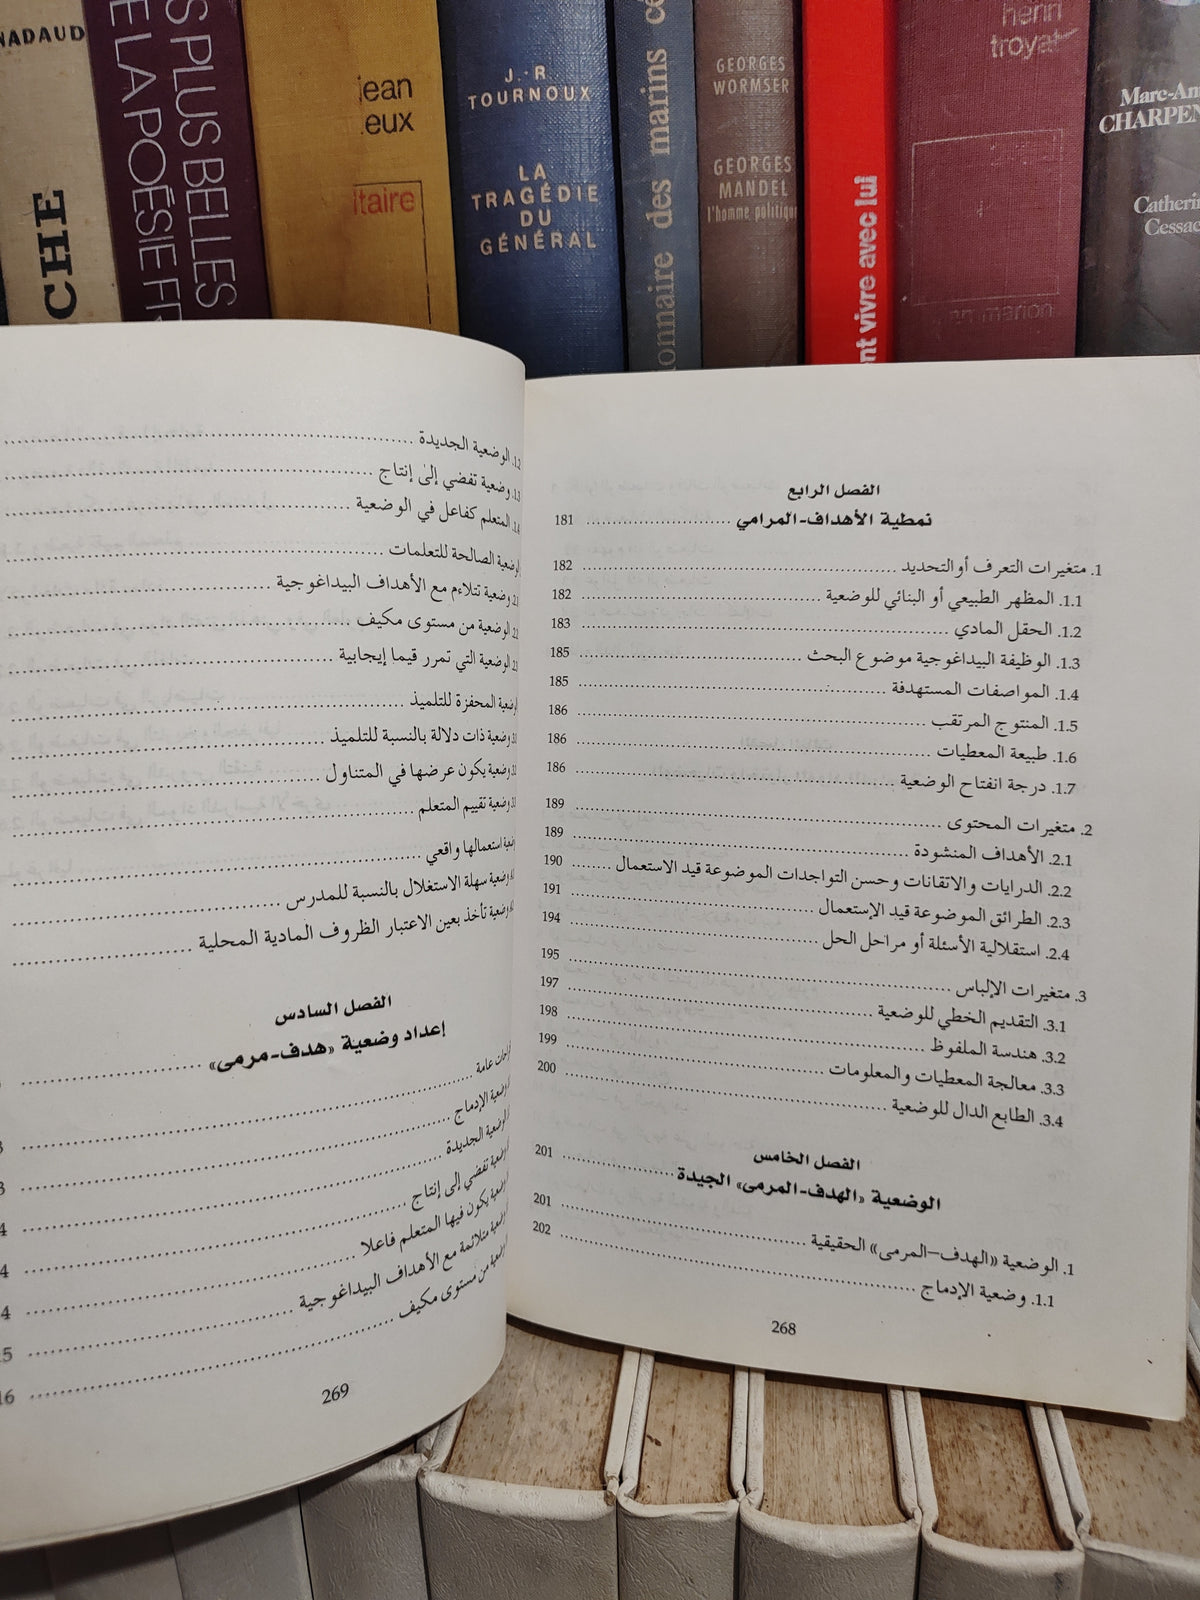 NADAUD
CHE
S PLUS BELLES
E LA POÉSIE FR
jean
eux
itaire
J.-R.
TOURNOUX
LA
TRAGÉDIE
DU
GÉNÉRAL
onnaire des marins cé
GEORGES
WORMSER
GEORGES
MANDEL
l'homme politique
nt vivre avec lui
henri
troyat
Marc-An
CHARPEN
Catherin
Cessac
الفصل الرابع
نمطية الأهداف-المرامي ........ 181
1. متغيرات التعرف أوالتحديد ........ 182
1.1. المظهر الطبيعي أو البنائي للوضعية ........ 182
1.2. الحقل المادي ........ 183
1.3. الوظيفة البيداغوجية موضوع البحث ........ 185
1.4. المواصفات المستهدفة ........ 185
1.5. المنتوج المرتقب ........ 186
1.6. طبيعة المعطيات ........ 186
1.7. درجة انفتاح الوضعية ........ 186
2. متغيرات المحتوى ........ 189
2.1. الأهداف المنشودة ........ 189
2.2. الدرايات والاتقانات وحسن التواجدات الموضوعة قيد الاستعمال ........ 190
2.3. الطرائق الموضوعة قيد الإستعمال ........ 191
2.4. استقلالية الأسئلة أو مراحل الحل ........ 194
3. متغيرات الإلباس ........ 195
3.1. التقديم الخطي للوضعية ........ 197
3.2. هندسة الملفوظ ........ 198
3.3. معالجة المعطيات والمعلومات ........ 199
3.4. الطابع الدال للوضعية ........ 200
الفصل الخامس
الوضعية «الهدف-المرمى» الجيدة ........ 201
1. الوضعية «الهدف–المرمى» الحقيقية ........ 201
1.1. وضعية الإدماج ........ 202
268
1.2. الوضعية الجديدة ........
1.3. وضعية تفضي إلى إنتاج ........
1.4. المتعلم كفاعل في الوضعية ........
الصالحة للتعلمات ........
وضعية تتلاءم مع الأهداف البيداغوجية ........
الوضعية من مستوى مكيف ........
الوضعية التي تمرر قيما إيجابية ........
الوضعية المحفزة للتلميذ ........
وضعية ذات دلالة بالنسبة للتلميذ ........
وضعية يكون عرضها في المتناول ........
وضعية تقييم المتعلم ........
استعمالها واقعي ........
وضعية سهلة الاستغلال بالنسبة للمدرس ........
وضعية تأخذ بعين الاعتبار الظروف المادية المحلية ........
الفصل السادس
إعداد وضعية «هدف-مرمى» ........
عامة ........
وضعية الإدماج ........
الوضعية الجديدة ........
وضعية تفضي إلى إنتاج ........
وضعية يكون فيها المتعلم فاعلا ........
متلائمة مع الأهداف البيداغوجية ........
من مستوى مكيف ........
269